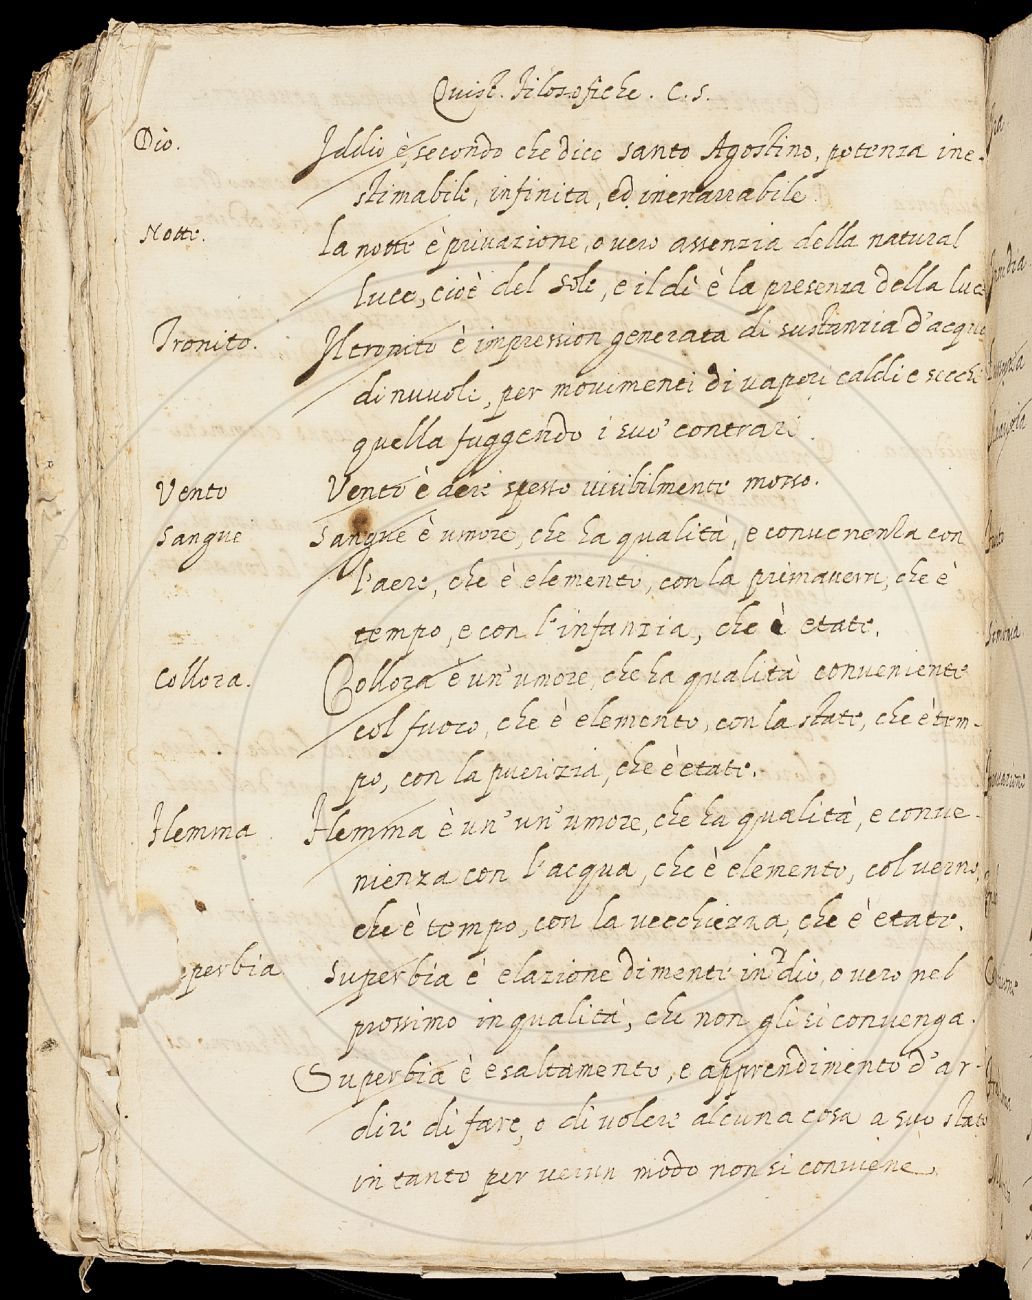 Quist. Filosofiche. C. S.
Dio. Iddio è, secondo che dice santo Agostino, potenza ine-
stimabile, infinita, ed inenarrabile.
Notte. la notte è privazione, o vero assenzia della natural
luce, cioè del sole, e il dì è la presenza della luce
Tronito. Il tronito è impression generata di sustanzia d'acque
di nuvoli, per movimenti di vapori caldi e secchi
quella fuggendo i suo' contrari.
Vento Vento è aere spesso visibilmente mosso.
Sangue Sangue è umore, che ha qualità, e convenenza con
l'aere, che è elemento, con la primavera, che è
tempo, e con l'infanzia, che è etate.
Collora. Collora è un' umore, che ha qualità conveniente
col fuoco, che è elemento, con la state, che è tem-
po, con la puerizia, che è etate.
Flemma. Flemma è un' un' umore, che ha qualità, e conve-
nienza con l'acqua, che è elemento, col verno,
che è tempo, con la vecchiezza, che è etate.
perbia Superbia è elazione di mente in dio, o vero nel
prossimo in qualità, che non gli si convenga.
Superbia è esaltamento, e apprendimento d'ar-
dire di fare, o di volere alcuna cosa a suo stato
in tanto per verun modo non si conviene.